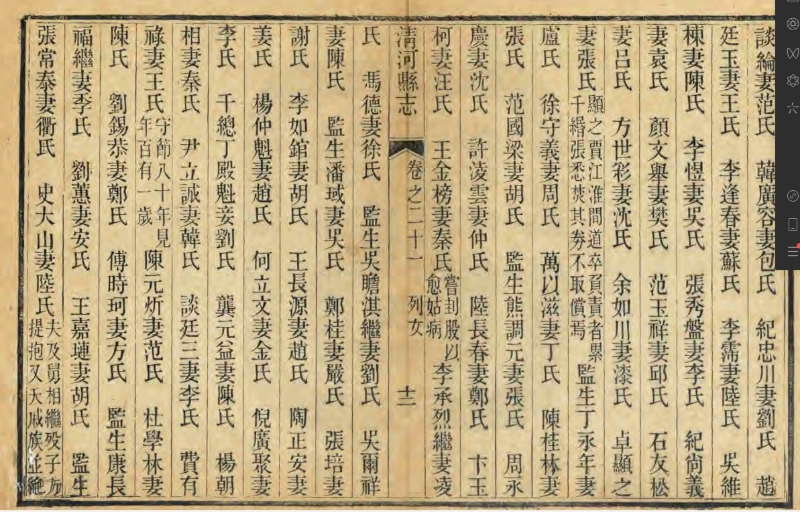 談綸妻范氏　韓廣容妻包氏　紀忠川妻劉氏　趙
廷玉妻王氏　李逢春妻蘇氏　李霈妻陸氏　吳維
棟妻陳氏　李煜妻吳氏　張秀盤妻李氏　紀尙義
妻袁氏　顏文舉妻樊氏　范玉祥妻邱氏　石友松
妻呂氏　方世彩妻沈氏　余如川妻漆氏　卓顯之
妻張氏顯之賈江淮間道卒負責者累千緡張悉焚其券不取償焉　監生丁永年妻
盧氏　徐守義妻周氏　萬以滋妻丁氏　陳桂林妻
張氏　范國梁妻胡氏　監生熊調元妻張氏　周永
慶妻沈氏　許凌雲妻仲氏　陸長春妻鄭氏　卞玉
柯妻汪氏　王金榜妻秦氏嘗刲股以愈姑病　李承烈繼妻凌
清河縣志　卷之二十一　列女　十二
氏　馮德妻徐氏　監生吳瞻淇繼妻劉氏　吳爾祥
妻陳氏　監生潘珹妻吳氏　鄭桂妻嚴氏　張培妻
謝氏　李如錧妻胡氏　王長源妻趙氏　陶正安妻
姜氏　楊仲魁妻趙氏　何立文妻金氏　倪廣聚妻
李氏　千總丁殿魁妾劉氏　龔元益妻陳氏　楊朝
相妻秦氏　尹立誠妻韓氏　談廷三妻李氏　費有
祿妻王氏守節八十年見年百有一歲　陳元炘妻范氏　杜學林妻
陳氏　劉錫恭妻鄭氏　傅時珂妻方氏　監生康長
福繼妻季氏　劉蕙妻安氏　王嘉璉妻胡氏　監生
張常泰妻衢氏　史大山妻陸氏夫及舅相繼歿子方提抱又夭戚族並絶